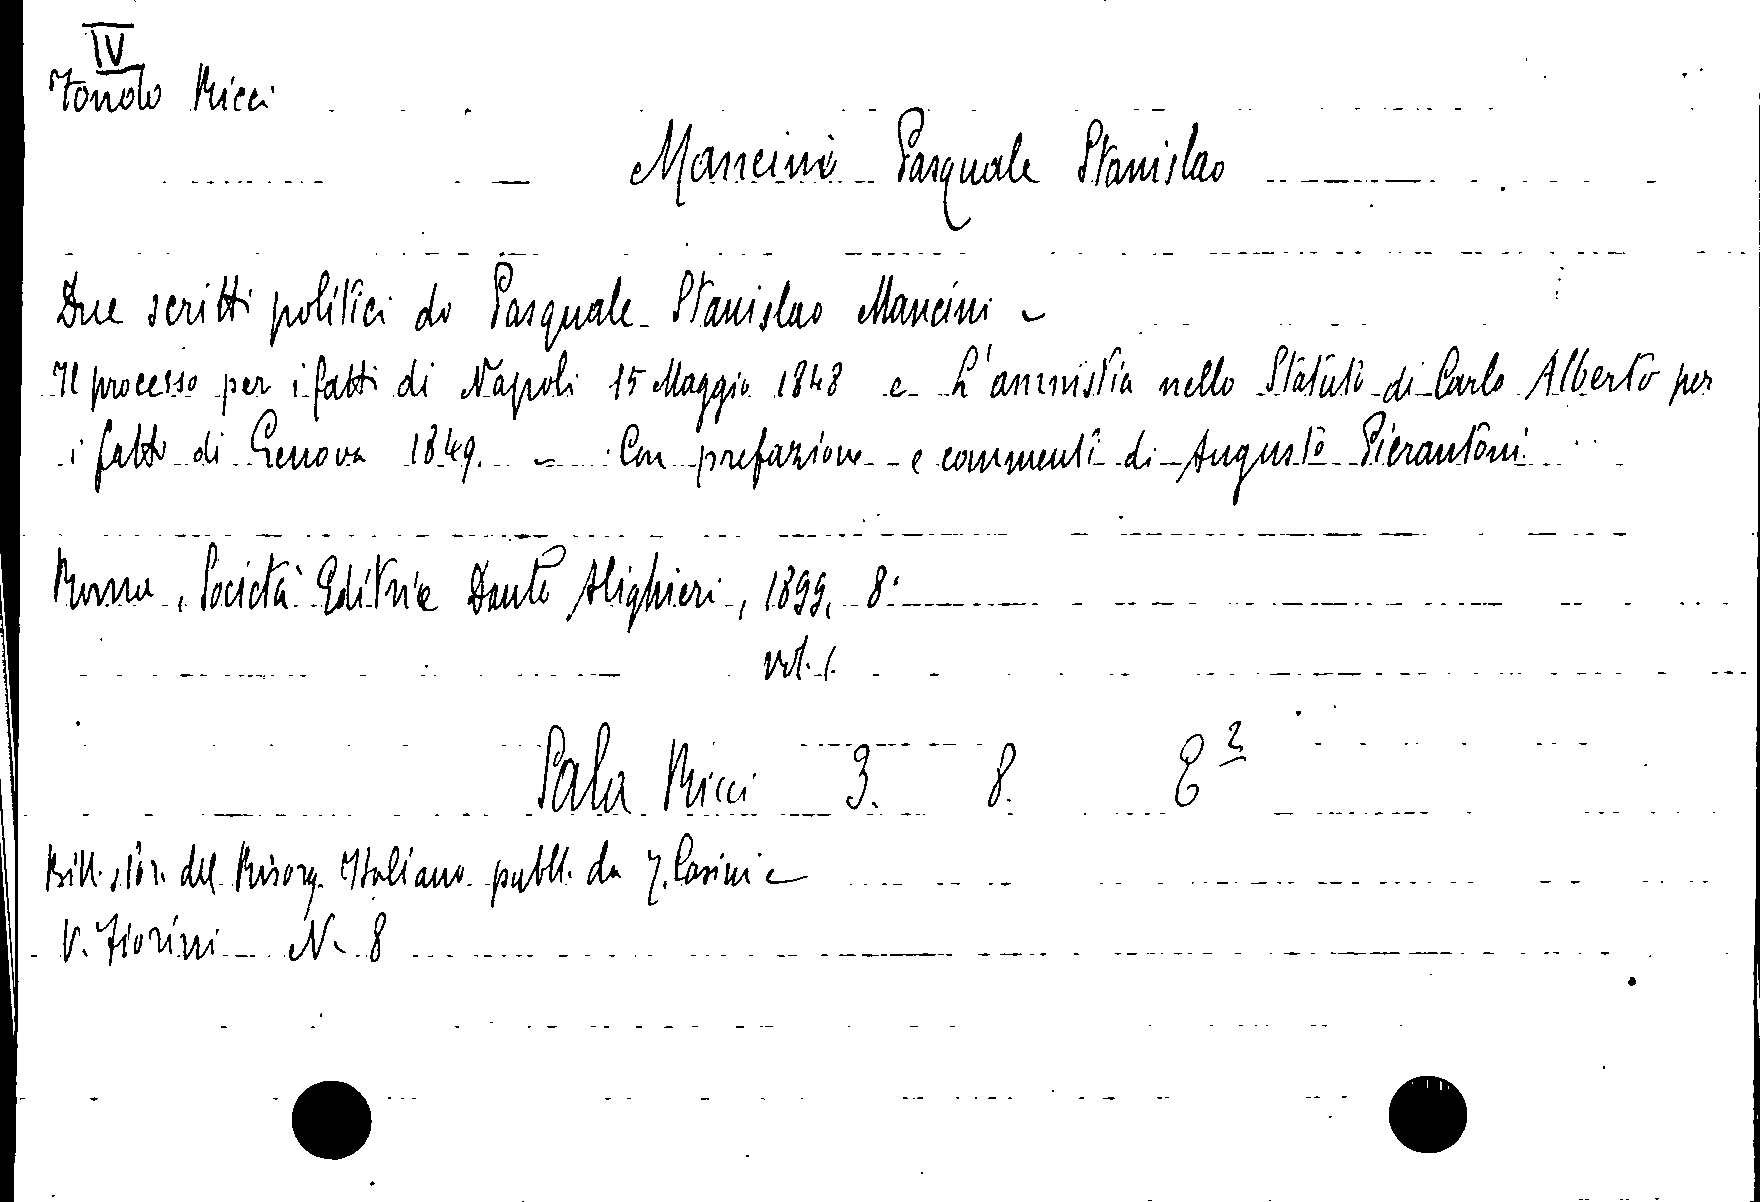 IV
Fondo Ricci
Mancini Pasquale Stanislao
Due scritti politici di Pasquale Stanislao Mancini -
Il processo per i fatti di Napoli 15 Maggio 1848 e L'amnistia nello Statuto di Carlo Alberto per
i fatti di Genova 1849. - Con prefazione e commenti di Augusto Pierantoni
Roma, Società Editrice Dante Alighieri, 1899, 8°
vol. 1.
Sala Ricci 3. 8. E²
Bibl. stor. del Risorg. Italiano pubbl. da T. Casini e
V. Fiorini N. 8